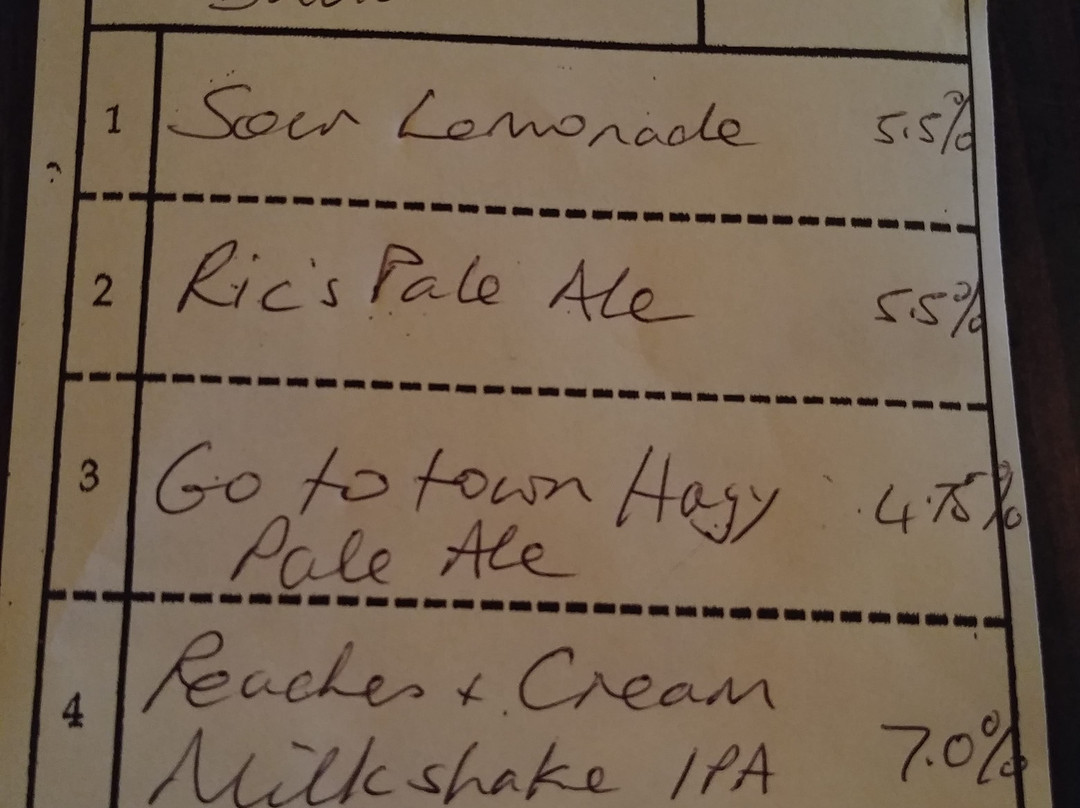 1 Sour Lemonade 5.5%
2 Ric's Pale Ale 5.5%
3 Go to town Hazy 4.75%
Pale Ale
4 Peaches + Cream
Milkshake IPA 7.0%